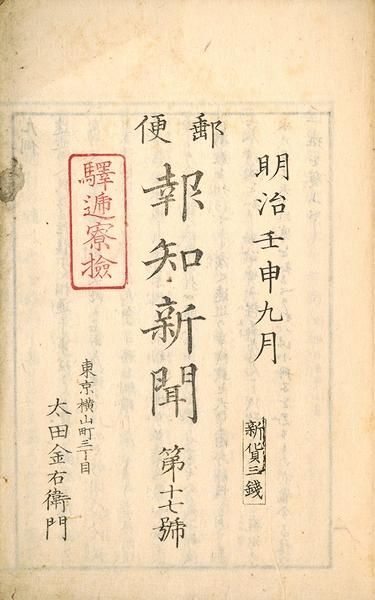 明治壬申九月
新貨三錢
郵便
報知新聞
第十七號
驛遞寮檢
東京横山町三丁目
太田金右衞門